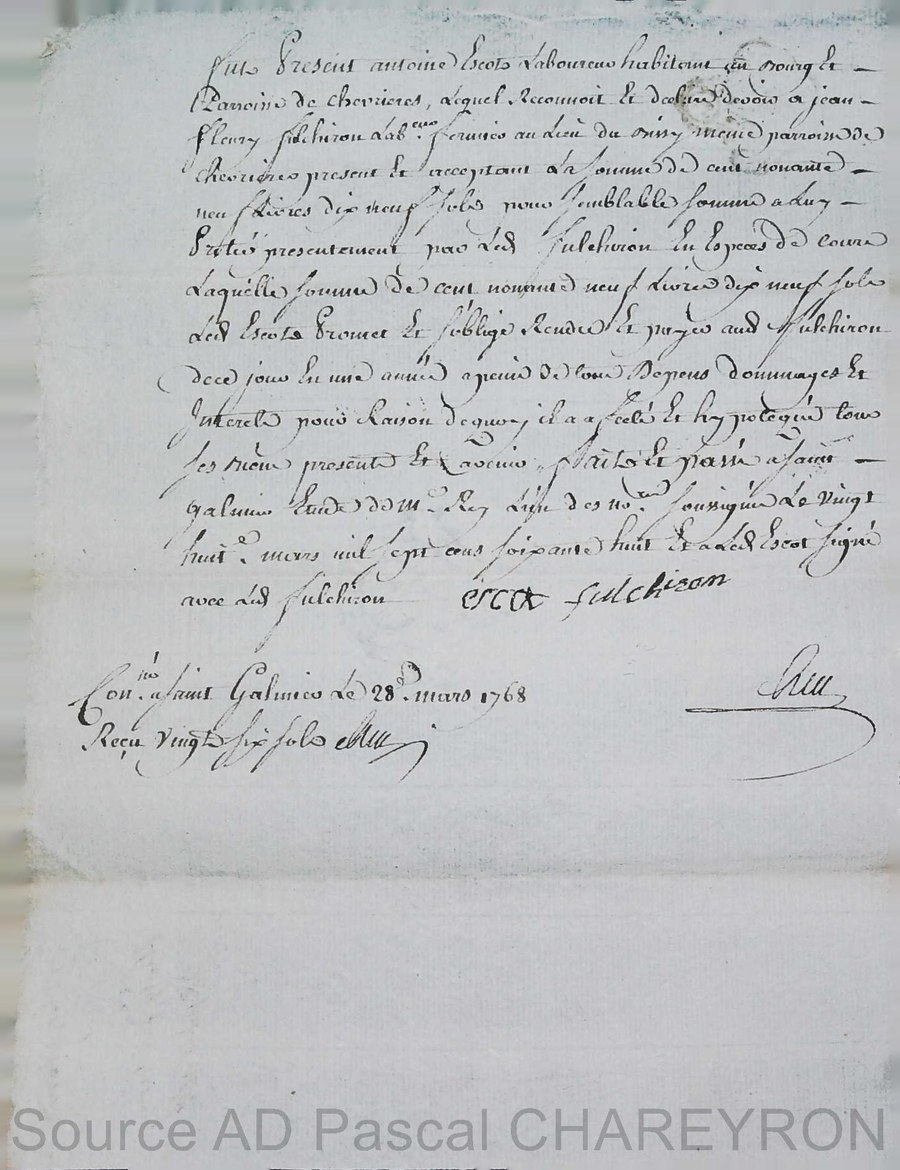 Fut Present antoine Escot Laboureur habitant au Bourg Et
Parroisse de Chevrieres, Lequel Reconnoit Et declare devoir a jean
fleury fulchiron Lab.eur fermier au Lieu du meme parroisse de
Chevrieres present Et acceptant La somme de cent nonante
neuf Livres dix neuf sols pour semblable somme a Luy
Prété presentement par Led fulchiron En Especes de cours
Laquelle somme de cent nonante neuf Livres dix neuf sols
Led Escot Promet Et soblige Rendre Et payer aud fulchiron
dece jour En une année a peine de tous Depens dommages Et
Interets pour Raison dequoy il a affecté Et hypotequé tous
ses biens presents Et avenir, fait Et passé a saint
galmier Etude de M.e Rey L'un des no.res soussignés Le vingt
huit.e mars mil sept cens soixante huit Et a Led Escot signé
avec Led fulchiron escot fulchiron
Con.no a saint Galmier Le 28.e mars 1768
Reçu vingt six sols
Source AD Pascal CHAREYRON